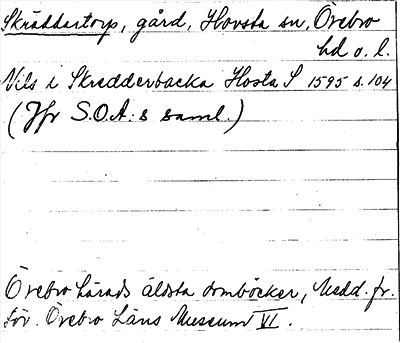 Skräddartorp, gård, Hovsta sn, Örebro
hd o. l.
Nils i Skredderbacka Hosta S 1595 s. 104
(Jfr S.O.A:s saml.)
Örebro härads äldsta domböcker, Medd. fr.
för. Örebro Läns Museum VI.